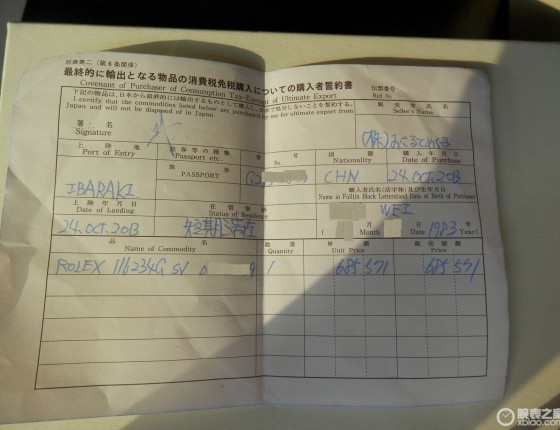 別表第二(第6条関係)
最終的に輸出となる物品の消費税免税購入についての購入者誓約書
Covenant of Purchaser of Consumption Tax-Exempt of Ultimate Export
伝票番号
Ref. No.
下記の物品は、日本から最終的には輸出するものとして購入し、日本で処分しないことを誓約する。
I certify that the commodities listed below are purchased by me for ultimate export from
Japan and will not be disposed of in Japan.
販売者氏名
Seller's Name
署名
Signature
上陸地
Port of Entry
旅券等の種類
Passport etc.
番号
No.
国籍
Nationality
購入年月日
Date of Purchase
IBARAKI
旅券
PASSPORT
G2
CHN
24.OCT.2013
上陸年月日
Date of Landing
在留資格
Status of Residence
購入者氏名(活字体)及び生年月日
Name in Full(in Block Letters) and Date of Birth of Purchaser
WEI
24.OCT.2013
短期滞在
Month
Date
1983
Year)
品名
Name of Commodity
数量
Quantity
単価
Unit Price
販売価額
Price
ROLEX 116234G SV 0 9 1 685,571 685,571
腕表之家
xbiao.com